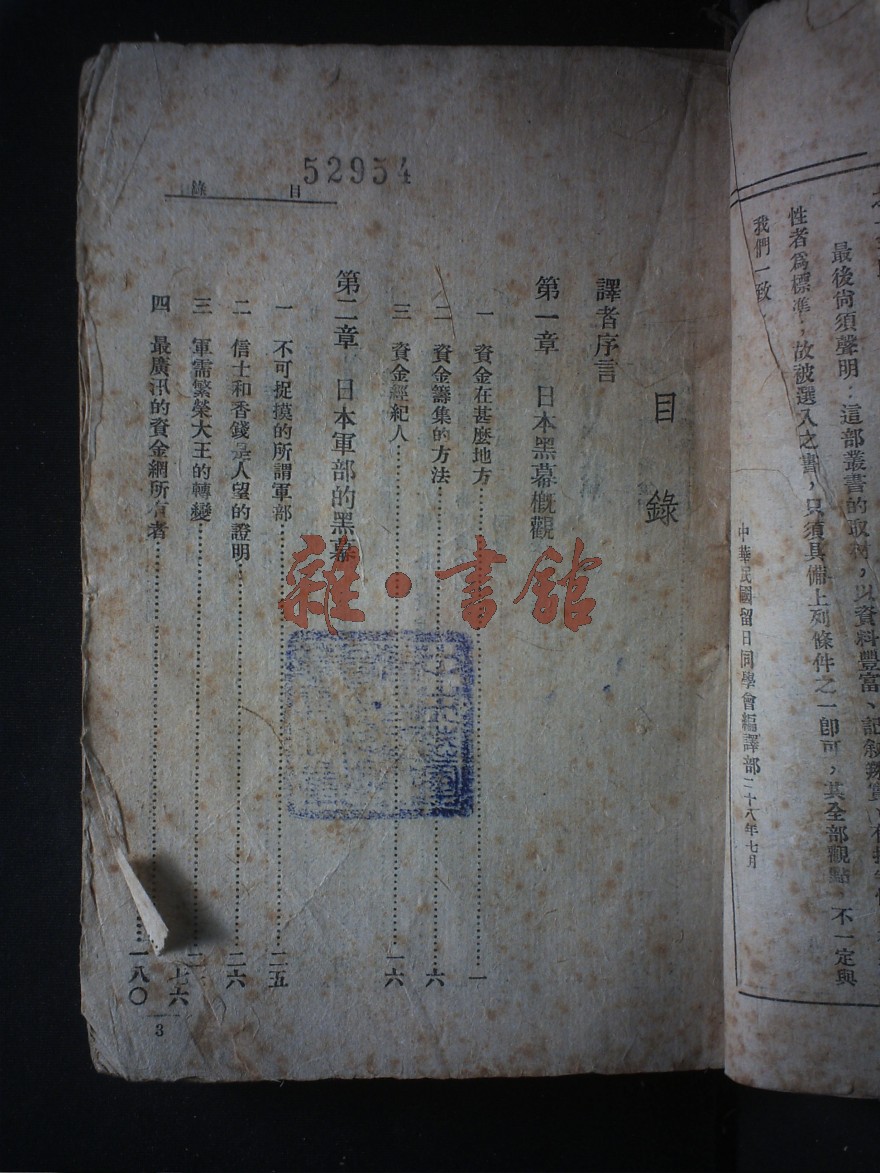 最後尙須聲明：這部叢書的取材，以資料豐富、記敘翔實
性者爲標準，故被選入之書，只須具備上列條件之一卽可，其全部觀點，不一定與
我們一致。
中華民國留日同學會編譯部二十八年七月
52954
目錄
目錄
譯者序言
第一章 日本黑幕槪觀
一 資金在甚麼地方…一
二 資金籌集的方法…六
三 資金經紀人…一六
第二章 日本軍部的黑幕
一 不可捉摸的所謂軍部…二五
二 信士和香錢是人望的證明…二六
三 軍需繁榮大王的轉變…二
四 最廣汎的資金網所有者
七六
一八〇
3
雜·書館